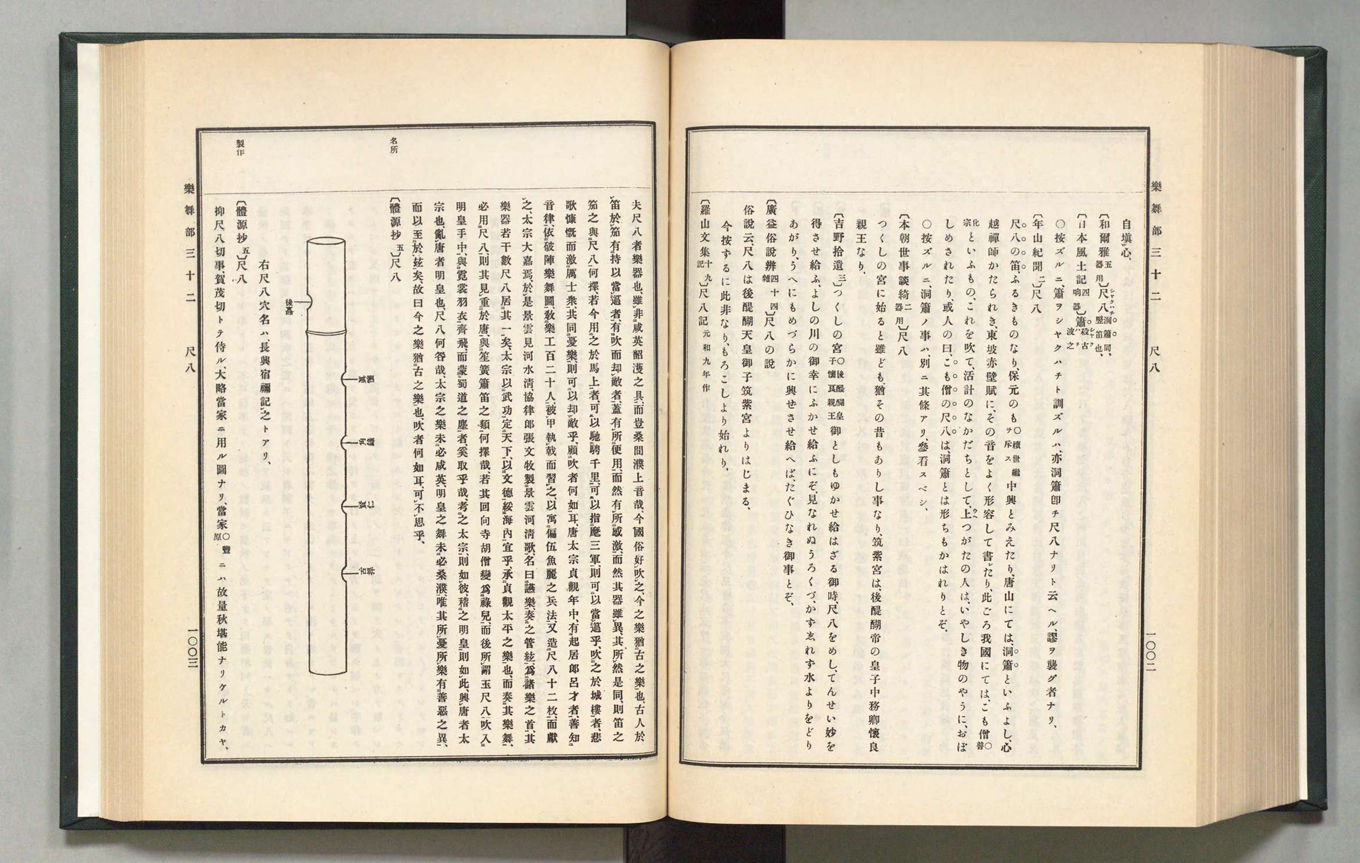 樂舞部三十二 尺八 一〇〇二
自塡心、
〔和爾雅 五 器用〕尺八 洞簫同、竪笛也、
〔日本風土記 四 響器〕簫
○按ズルニ、簫ヲシヤクハチト訓ズルハ、亦洞簫卽チ尺八ナリト云ヘル、謬ヲ襲グ者ナリ、
〔年山紀聞 二〕尺八
尺八の笛、ふるきものなり、保元のも 中興とみえたり、唐山にては洞簫といふよし、心
越禪師かたられき、東坡赤壁賦に、その音をよく形容して書たり、此ごろ我國にては、こも僧 ○普
化宗 といふもの、これを吹て、活計のなかだちとして、上つがたの人は、いやしき物のやうに、おぼ
しめされたり、或人の曰、こも僧の尺八は、洞簫とは形ちもかはれりとぞ、
○按ズルニ、洞簫ノ事ハ別ニ其條アリ、參看スベシ、
〔本朝世事談綺 二 器用〕尺八
つくしの宮に始ると雖ども、猶その昔もありし事なり、筑紫宮は、後醍醐帝の皇子中務卿懷良
親王なり、
〔吉野拾遺 三〕つくしの宮 ○後醍醐皇子懷良親王 御としもゆかせ給はざる御時、尺八をめし、てんせい妙を
得させ給ふ、よしの川の御幸にふかせ給ふにぞ、見なれぬうろくづ、かずゑれず水よりをどり
あがり、うへにもめづらかに興せさせ給へば、たぐひなき御事とぞ、
〔廣益俗說辨 四十四 雜〕尺八の說
俗說云、尺八は後醍醐天皇御子筑紫宮よりはじまる、
今按ずるに此非なり、もろこしより始れり、
〔羅山文集 十九 記〕尺八記 元和九年作
樂舞部三十二 尺八 一〇〇三
夫尺八者樂器也、雖非咸英韶濩之具、而豈桑間濮上音哉、今國俗好吹之、今之樂猶古之樂也、古人於
笛、於笳有持以當邇者、有吹而却敵者、蓋有所便用、而然有所感激、而然其器雖異、其所然是同、則笛之
笳之與尺八何擇、若今用之於馬上者、可以馳騁千里、可以指麾三軍、則可以當邇乎、吹之於城樓者、悲
歌慷慨而激厲士衆、共同憂樂、則可以却敵乎、顧吹者何如耳、唐太宗貞觀年中、有起居郎呂才者、善知
音律、依破陣樂舞圖、敎樂工百二十人、被甲執戟而習之、以寓偏伍魚麗之兵法、又造尺八十二枚、而獻
之、太宗大嘉焉、於是景雲見河水淸、協律郎張文收製景雲河淸歌、名曰讌樂、奏之管絃、爲諸樂之首、其
樂器若干數、尺八居其一矣、太宗以武功定天下、以文德綏海內、宜乎承貞觀太平之樂也、而奏其樂舞、
必用尺八、則其見重於唐、與笙簧簫笛之類何擇哉、若其回向寺胡僧變爲祿兒、而後所謂玉尺八吹入
明皇手中、與霓裳羽衣齊飛、而蒙蜀道之塵者、奚取乎哉、考之太宗、則如彼、稽之明皇、則如此、興唐者太
宗也、亂唐者明皇也、尺八何咎哉、太宗之樂、未必咸英、明皇之舞、未必桑濮、唯其所憂所樂、有善惡之異、
而以至於玆矣、故曰、今之樂猶古之樂也、吹者何如耳、可不思乎、
名所
〔體源抄 五〕尺八
後
右尺八穴名ハ、長興宿禰記之トアリ、
製作
〔體源抄 五〕尺八
抑尺八切事、賀茂切トテ侍ル、大略當家ニ用ル圖ナリ、當家 ○豐原 ニハ、故量秋堪能ナリケルトカヤ、